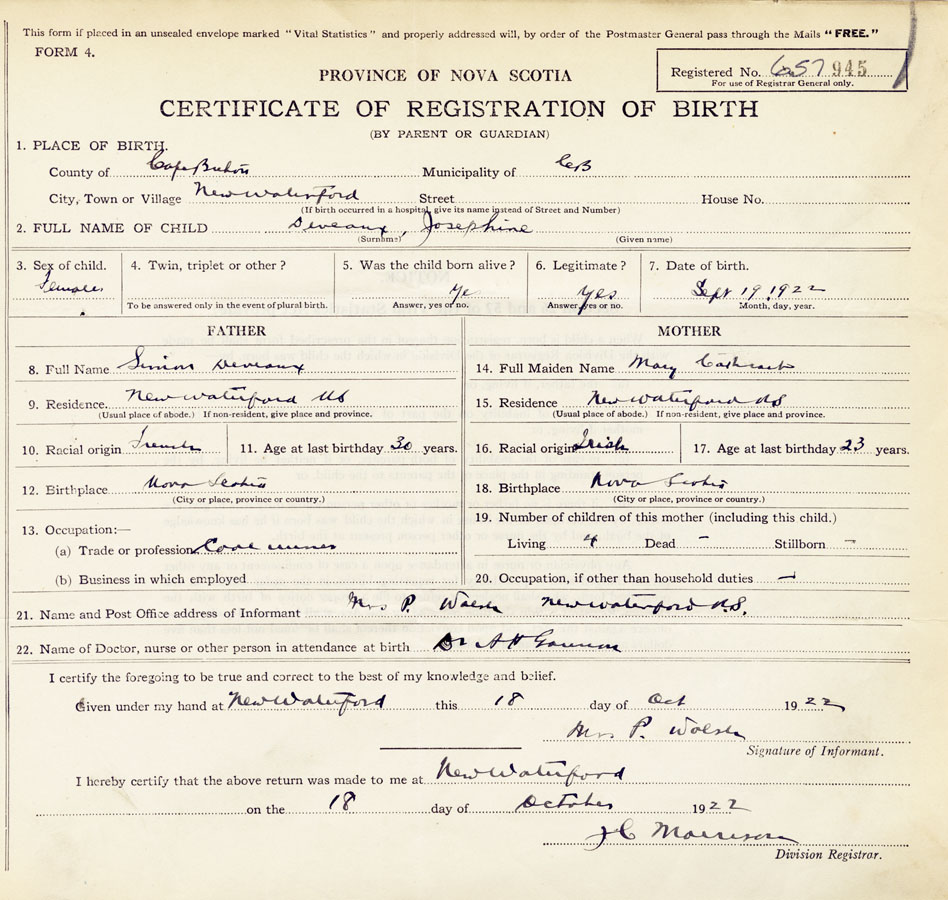 This form if placed in an unsealed envelope marked "Vital Statistics" and properly addressed will, by order of the Postmaster General pass through the Mails "FREE."
FORM 4.
Registered No. 657 945
For use of Registrar General only.
PROVINCE OF NOVA SCOTIA
CERTIFICATE OF REGISTRATION OF BIRTH
(BY PARENT OR GUARDIAN)
1. PLACE OF BIRTH.
County of Cape Breton Municipality of CB
City, Town or Village New Waterford Street House No.
(If birth occurred in a hospital, give its name instead of Street and Number)
2. FULL NAME OF CHILD Deveaux, Josephine
(Surname) (Given name)
3. Sex of child. 4. Twin, triplet or other? 5. Was the child born alive? 6. Legitimate? 7. Date of birth.
Female Ye Yes Sept 19, 1922
To be answered only in the event of plural birth. Answer, yes or no. Answer, yes or no. Month, day, year.
FATHER MOTHER
8. Full Name Simon Deveaux 14. Full Maiden Name Mary
9. Residence. New Waterford NS 15. Residence. New Waterford NS
(Usual place of abode.) If non-resident, give place and province. (Usual place of abode.) If non-resident, give place and province.
10. Racial origin French 11. Age at last birthday 30 years. 16. Racial origin Irish 17. Age at last birthday 23 years.
12. Birthplace Nova Scotia 18. Birthplace Nova Scotia
(City or place, province or country.) (City or place, province or country.)
13. Occupation:— 19. Number of children of this mother (including this child.)
(a) Trade or profession Coal miner Living 4 Dead – Stillborn –
(b) Business in which employed 20. Occupation, if other than household duties –
21. Name and Post Office address of Informant Mrs P. Walsh New Waterford N.S.
22. Name of Doctor, nurse or other person in attendance at birth Dr A H
I certify the foregoing to be true and correct to the best of my knowledge and belief.
Given under my hand at New Waterford this 18 day of Oct 1922
Mrs P. Walsh
Signature of Informant.
I hereby certify that the above return was made to me at New Waterford
on the 18 day of October 1922
J C Morrison
Division Registrar.